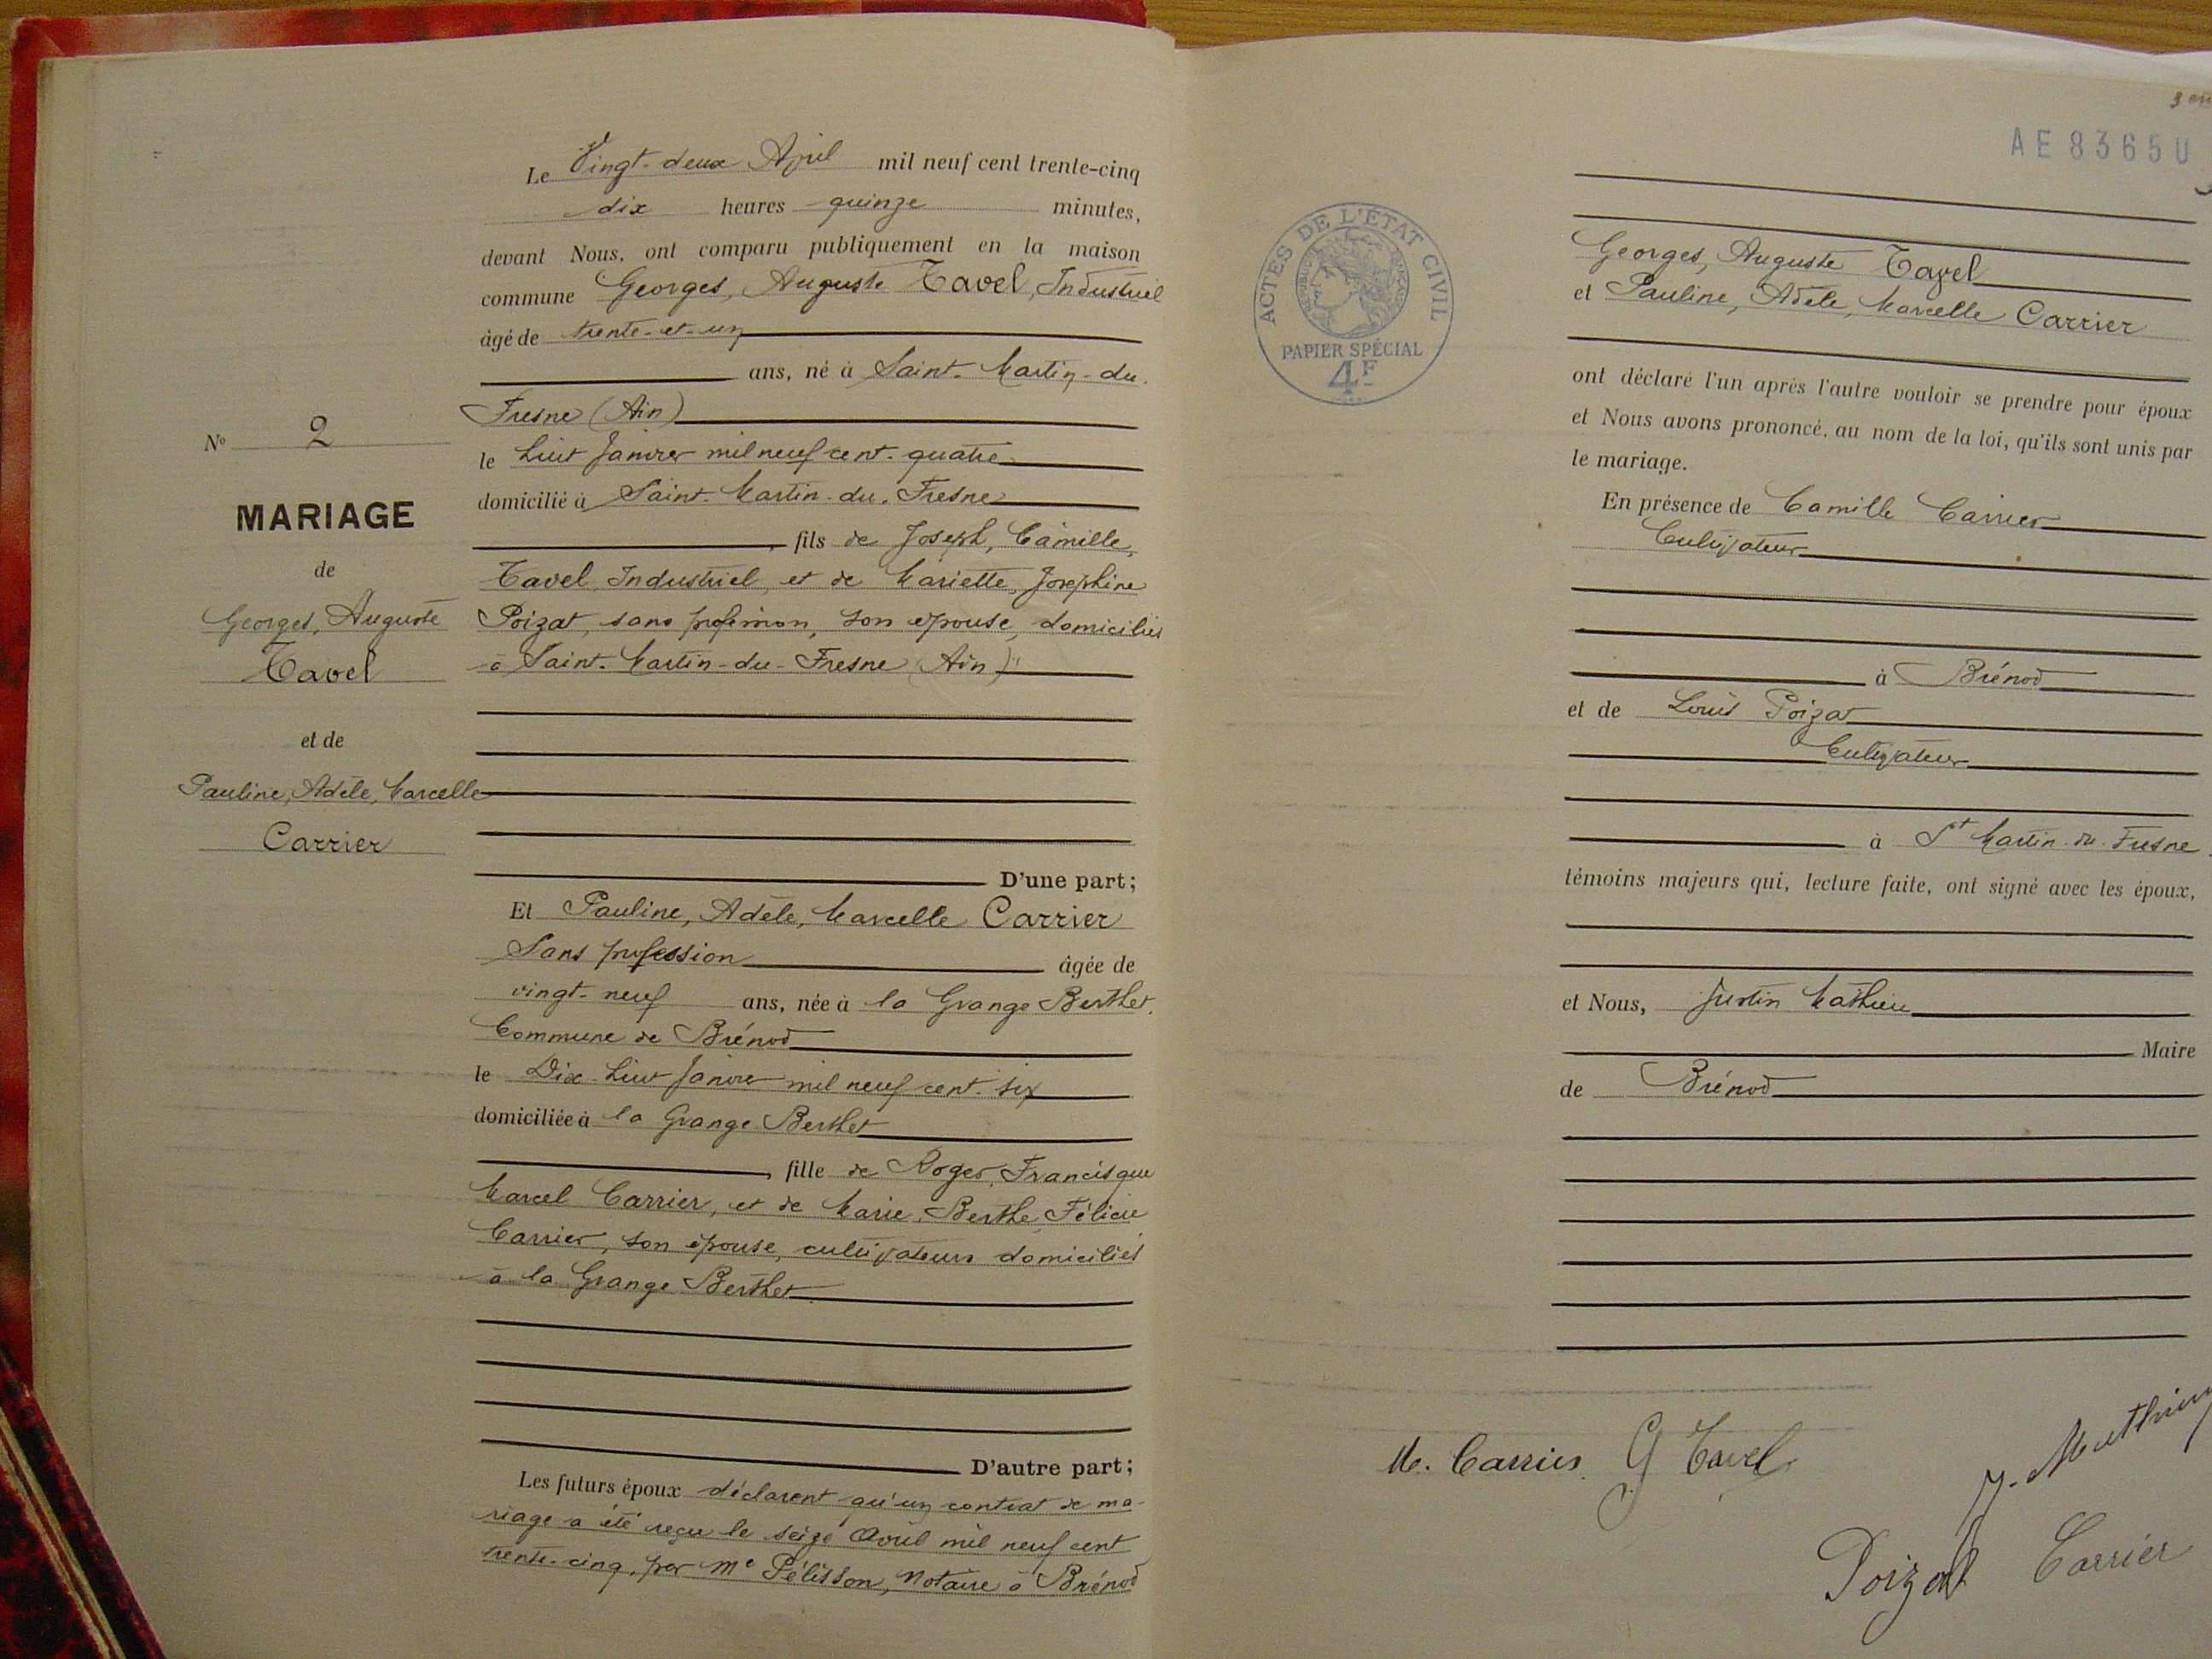 Le Vingt-deux Avril mil neuf cent trente-cinq
dix heures quinze minutes,
devant Nous, ont comparu publiquement en la maison
commune Georges, Auguste Tavel, Industriel
âgé de trente-et-un
ans, né à Saint-Martin-du-
Fresne (Ain)
le huit Janvier mil neuf cent-quatre
domicilié à Saint-Martin-du-Fresne
, fils de Joseph, Camille,
Tavel, Industriel, et de Mariette, Joséphine
Poizat, sans profession, son épouse, domiciliés
à Saint-Martin-du-Fresne (Ain)
D'une part;
Et Pauline, Adèle, Marcelle Carrier
Sans profession âgée de
vingt-neuf ans, née à la Grange Berthet,
Commune de Brénod
le Dix-huit Janvier mil neuf cent-six
domiciliée à la Grange Berthet
, fille de Roger, Francisque
Marcel Carrier, et de Marie, Berthe, Félicie
Carrier, son épouse, cultivateurs domiciliés
à la Grange Berthet
D'autre part;
Les futurs époux déclarent qu'un contrat de ma-
riage a été reçu le seize Avril mil neuf cent
trente-cinq, par Me Pélisson, Notaire à Brénod
N° 2
MARIAGE
de
Georges, Auguste
Tavel
et de
Pauline, Adèle, Marcelle
Carrier
AE 83650
ACTES DE L'ÉTAT CIVIL
PAPIER SPÉCIAL
4F
Georges, Auguste Tavel
et Pauline, Adèle, Marcelle Carrier
ont déclaré l'un après l'autre vouloir se prendre pour époux
et Nous avons prononcé, au nom de la loi, qu'ils sont unis par
le mariage.
En présence de Camille Carrier
Cultivateur
à Brénod
et de Louis Poizat
Cultivateur
à St Martin-du-Fresne
témoins majeurs qui, lecture faite, ont signé avec les époux,
et Nous, Justin Mathieu
Maire
de Brénod
M. Carrier G Tavel
J. Mathieu
Poizat Carrier